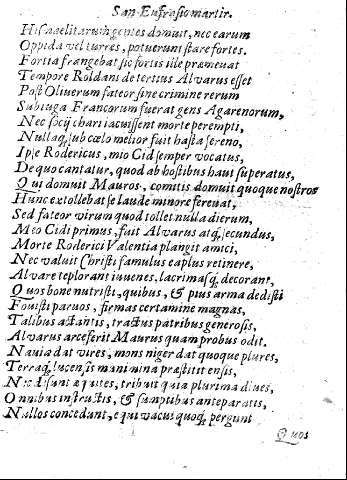 San Eufrasio martir.
Hismaelitarum gentes domuit, nec earum
Oppida vel turres, potuerunt stare fortes.
Fortia frangebat sic fortis ille præmeuat
Tempore Roldani de tertius Alvarus esset
Post Oliuerum fateor sine crimine rerum
Subiuga Francorum fuerat gens Agarenorum,
Nec socij chari iacuissent morte perempti,
Nullaq, sub cœlo melior fuit hasta sereno,
Ipse Rodericus, mio Cid semper vocatus,
De quo cantatur, quod ab hostibus haut superatus,
Qui domuit Mauros, comitis domuit quoque nostros
Hunc extollebat se laude minore fereuat,
Sed fateor virum quod tollet nulla dierum,
Meo Cidi primus, fuit Alvarus atq, secundus,
Morte Roderici Valentia plangit amici,
Nec valuit Christi famulus eaplus retinere,
Alvare te plorant iuuenes, lacrimasq, decorant,
Quos bone nutristi, quibus, & pius arma dedisti
Fouisti paruos, firmas certamine magnas,
Talibus actantis, tractus patribus generosis,
Alvarus arceferit Maurus quam probus odit.
Nauia dat vires, mons niger dat quoque plures,
Terraq, lucensis mani nina præstitit ensis,
Nec disunt æquites, tribuit quia plurima diues,
Omnibus instructis, & sumptibus anteparatis,
Nallos concedunt, e qui vacui quoq, pergunt
Quos